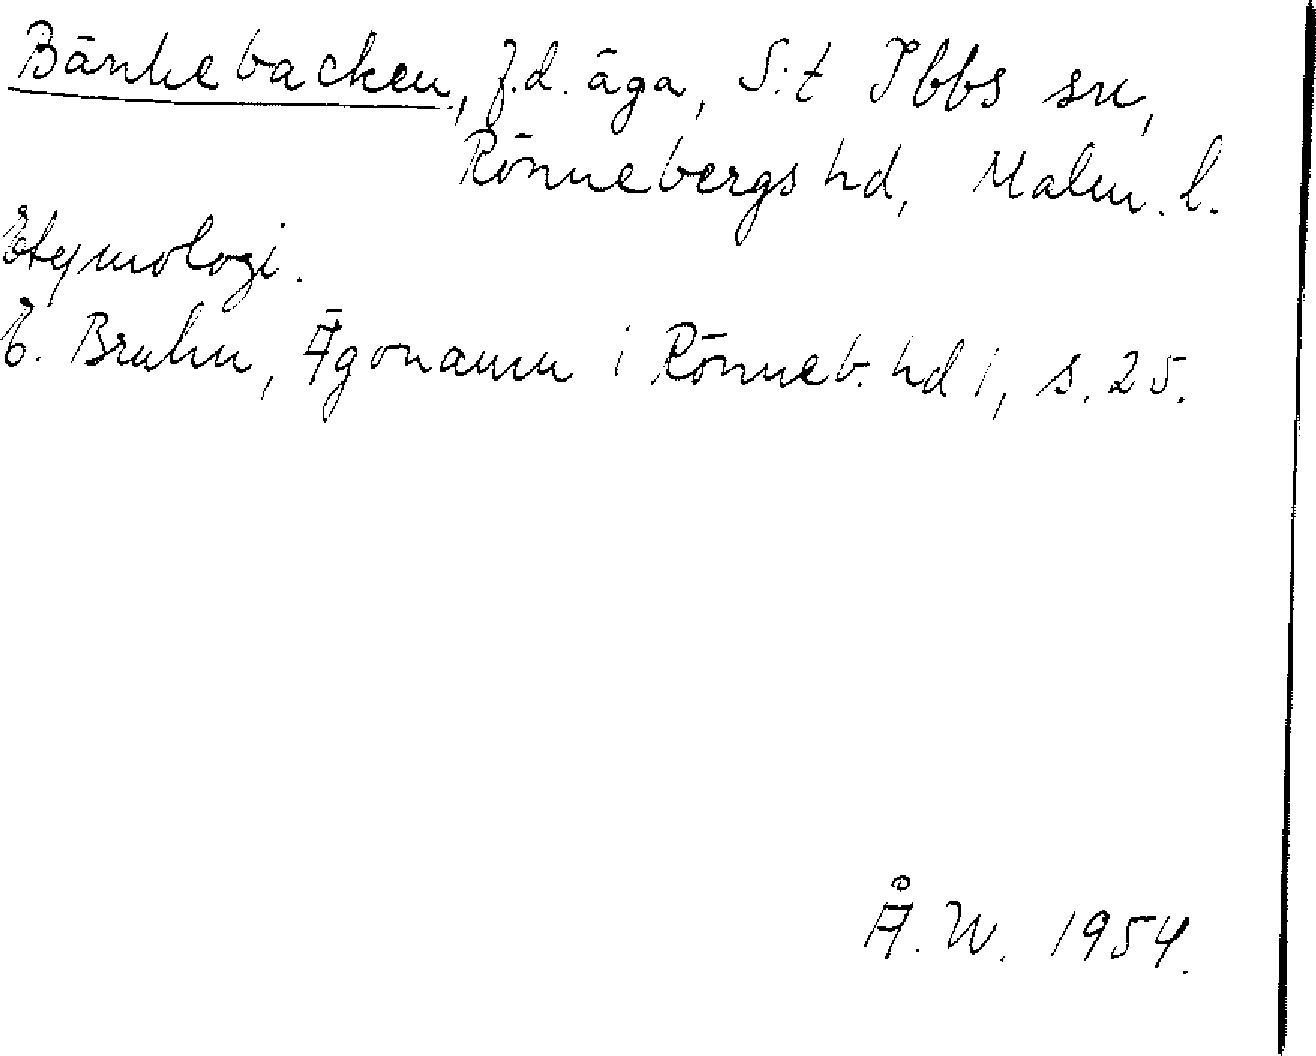 Bänkebacken, f.d. äga, S:t Ibbs sn,
Rönnebergs hd, Malm. l.
Etymologi.
E. Bruhn, Ägonamn i Rönneb. hd 1, s. 25.
Å. W. 1954.